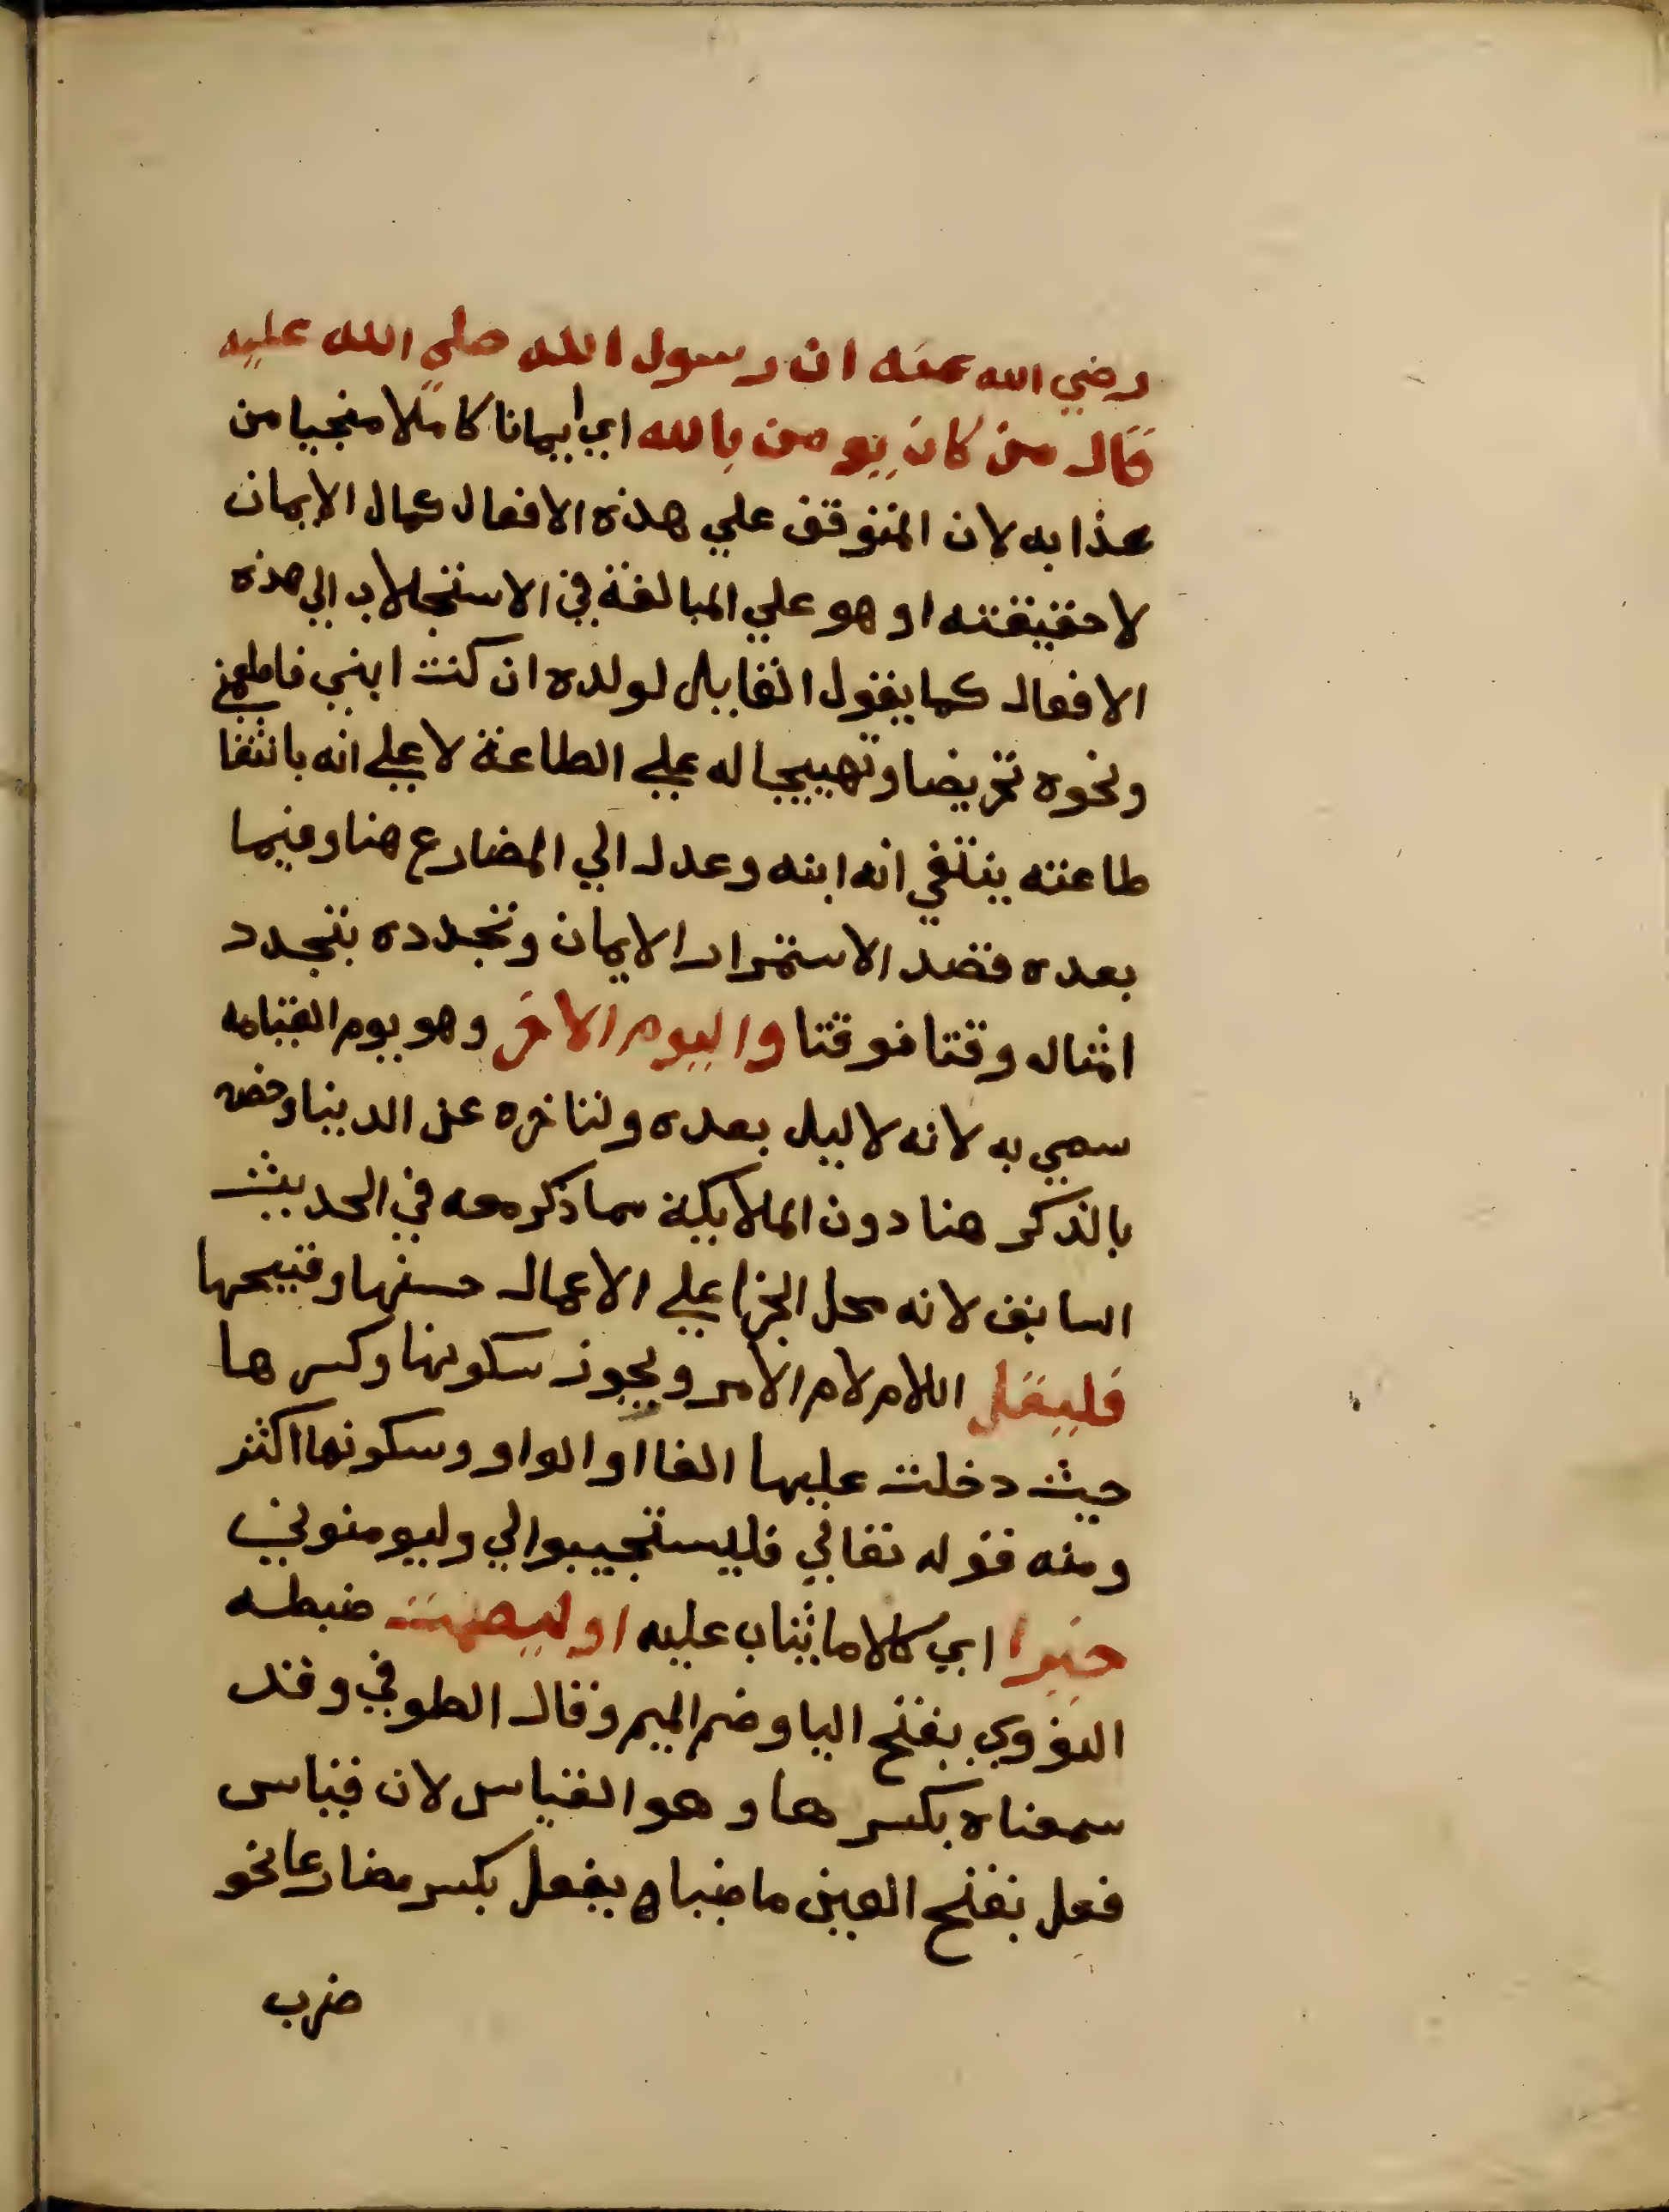 رضي الله عنه ان رسول الله صلي الله عليه
قال من كان يومن بالله اي ايمانا كاملا منجيا من
عذابه لان المتوقف علي هذه الافعال كمال الايمان
لاحقيقته او هو علي المبالغة في الاستجلاب الي هذه
الافعال كما يقول القايل لولده ان كنت ابني فاطعني
ونحوه تحريضا وتهييجا له علي الطاعة لا علي انه بانتفا
طاعته ينتفي انه ابنه وعدل الي المضارع هنا وفيما
بعده قصد الاستمرار الايمان وتجدده بتجدد
امثاله وقتا فوقتا واليوم الاخر وهو يوم القيامه
سمي به لانه لا ليل بعده ولتاخره عن الدينا وخصه
بالذكر هنا دون الملايكة مما ذكر معه في الحديث
السابق لانه محل الجزا علي الاعمال حسنها وقبيحها
فليقل اللام لام الامر ويجوز سكونها وكسرها
حيث دخلت عليها الفا او الواو وسكونها اكثر
ومنه قوله تعالي فليستجيبوا لي وليومنو بي
خيرا اي كلاما يثاب عليه او ليصمت ضبطه
النووي بفتح اليا وضم الميم وقال الطوفي وقد
سمعناه بكسرها وهو القياس لان قياس
فعل بفتح العين ماضيا ه يفعل بكسر مضارعا نحو
ضرب